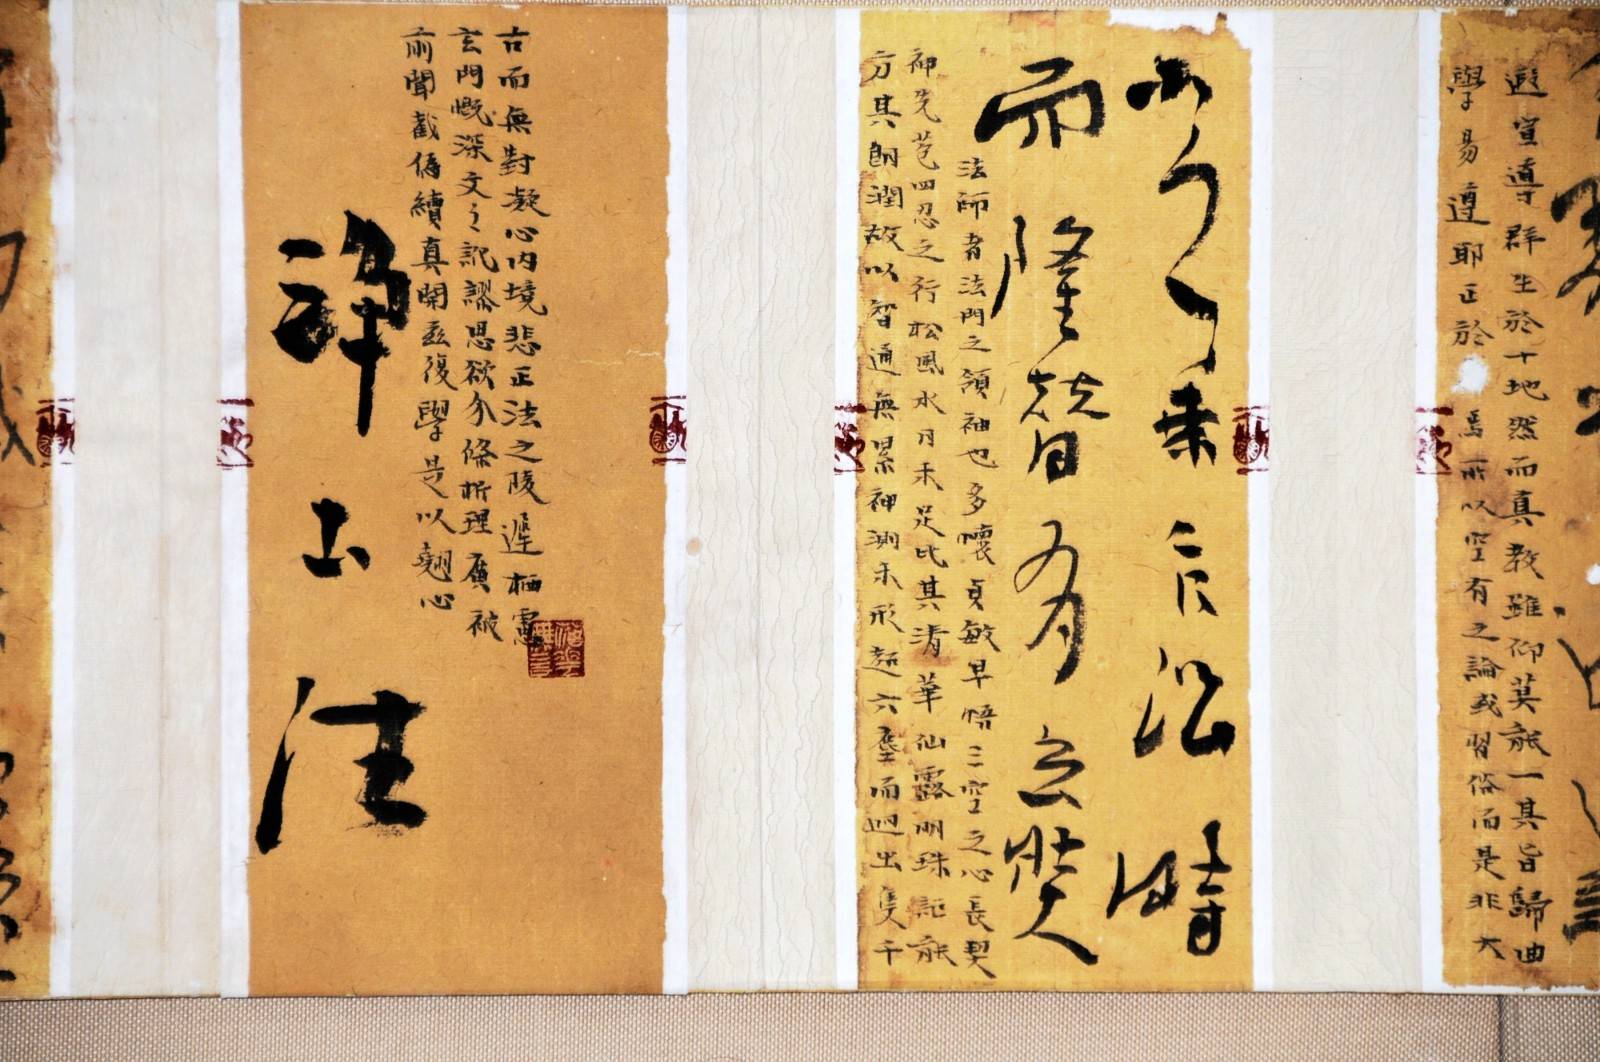 遐宣導群生於十地然而真教難仰莫能一其旨歸曲
學易遵耶正於焉所以空有之論或習俗而是非大
小之乘乍沿時
而隆替有玄奘
法師者法門之領袖也多懷貞敏早悟三空之心長契
神先苞四忍之行松風水月未足比其清華仙露明珠詎能
方其朗潤故以智通無累神測未形超六塵而迥出隻千
古而無對凝心內境悲正法之陵遲栖慮
玄門慨深文之訛謬思欲分條析理廣彼
前聞截偽續真開茲後學是以翹心
淨土法